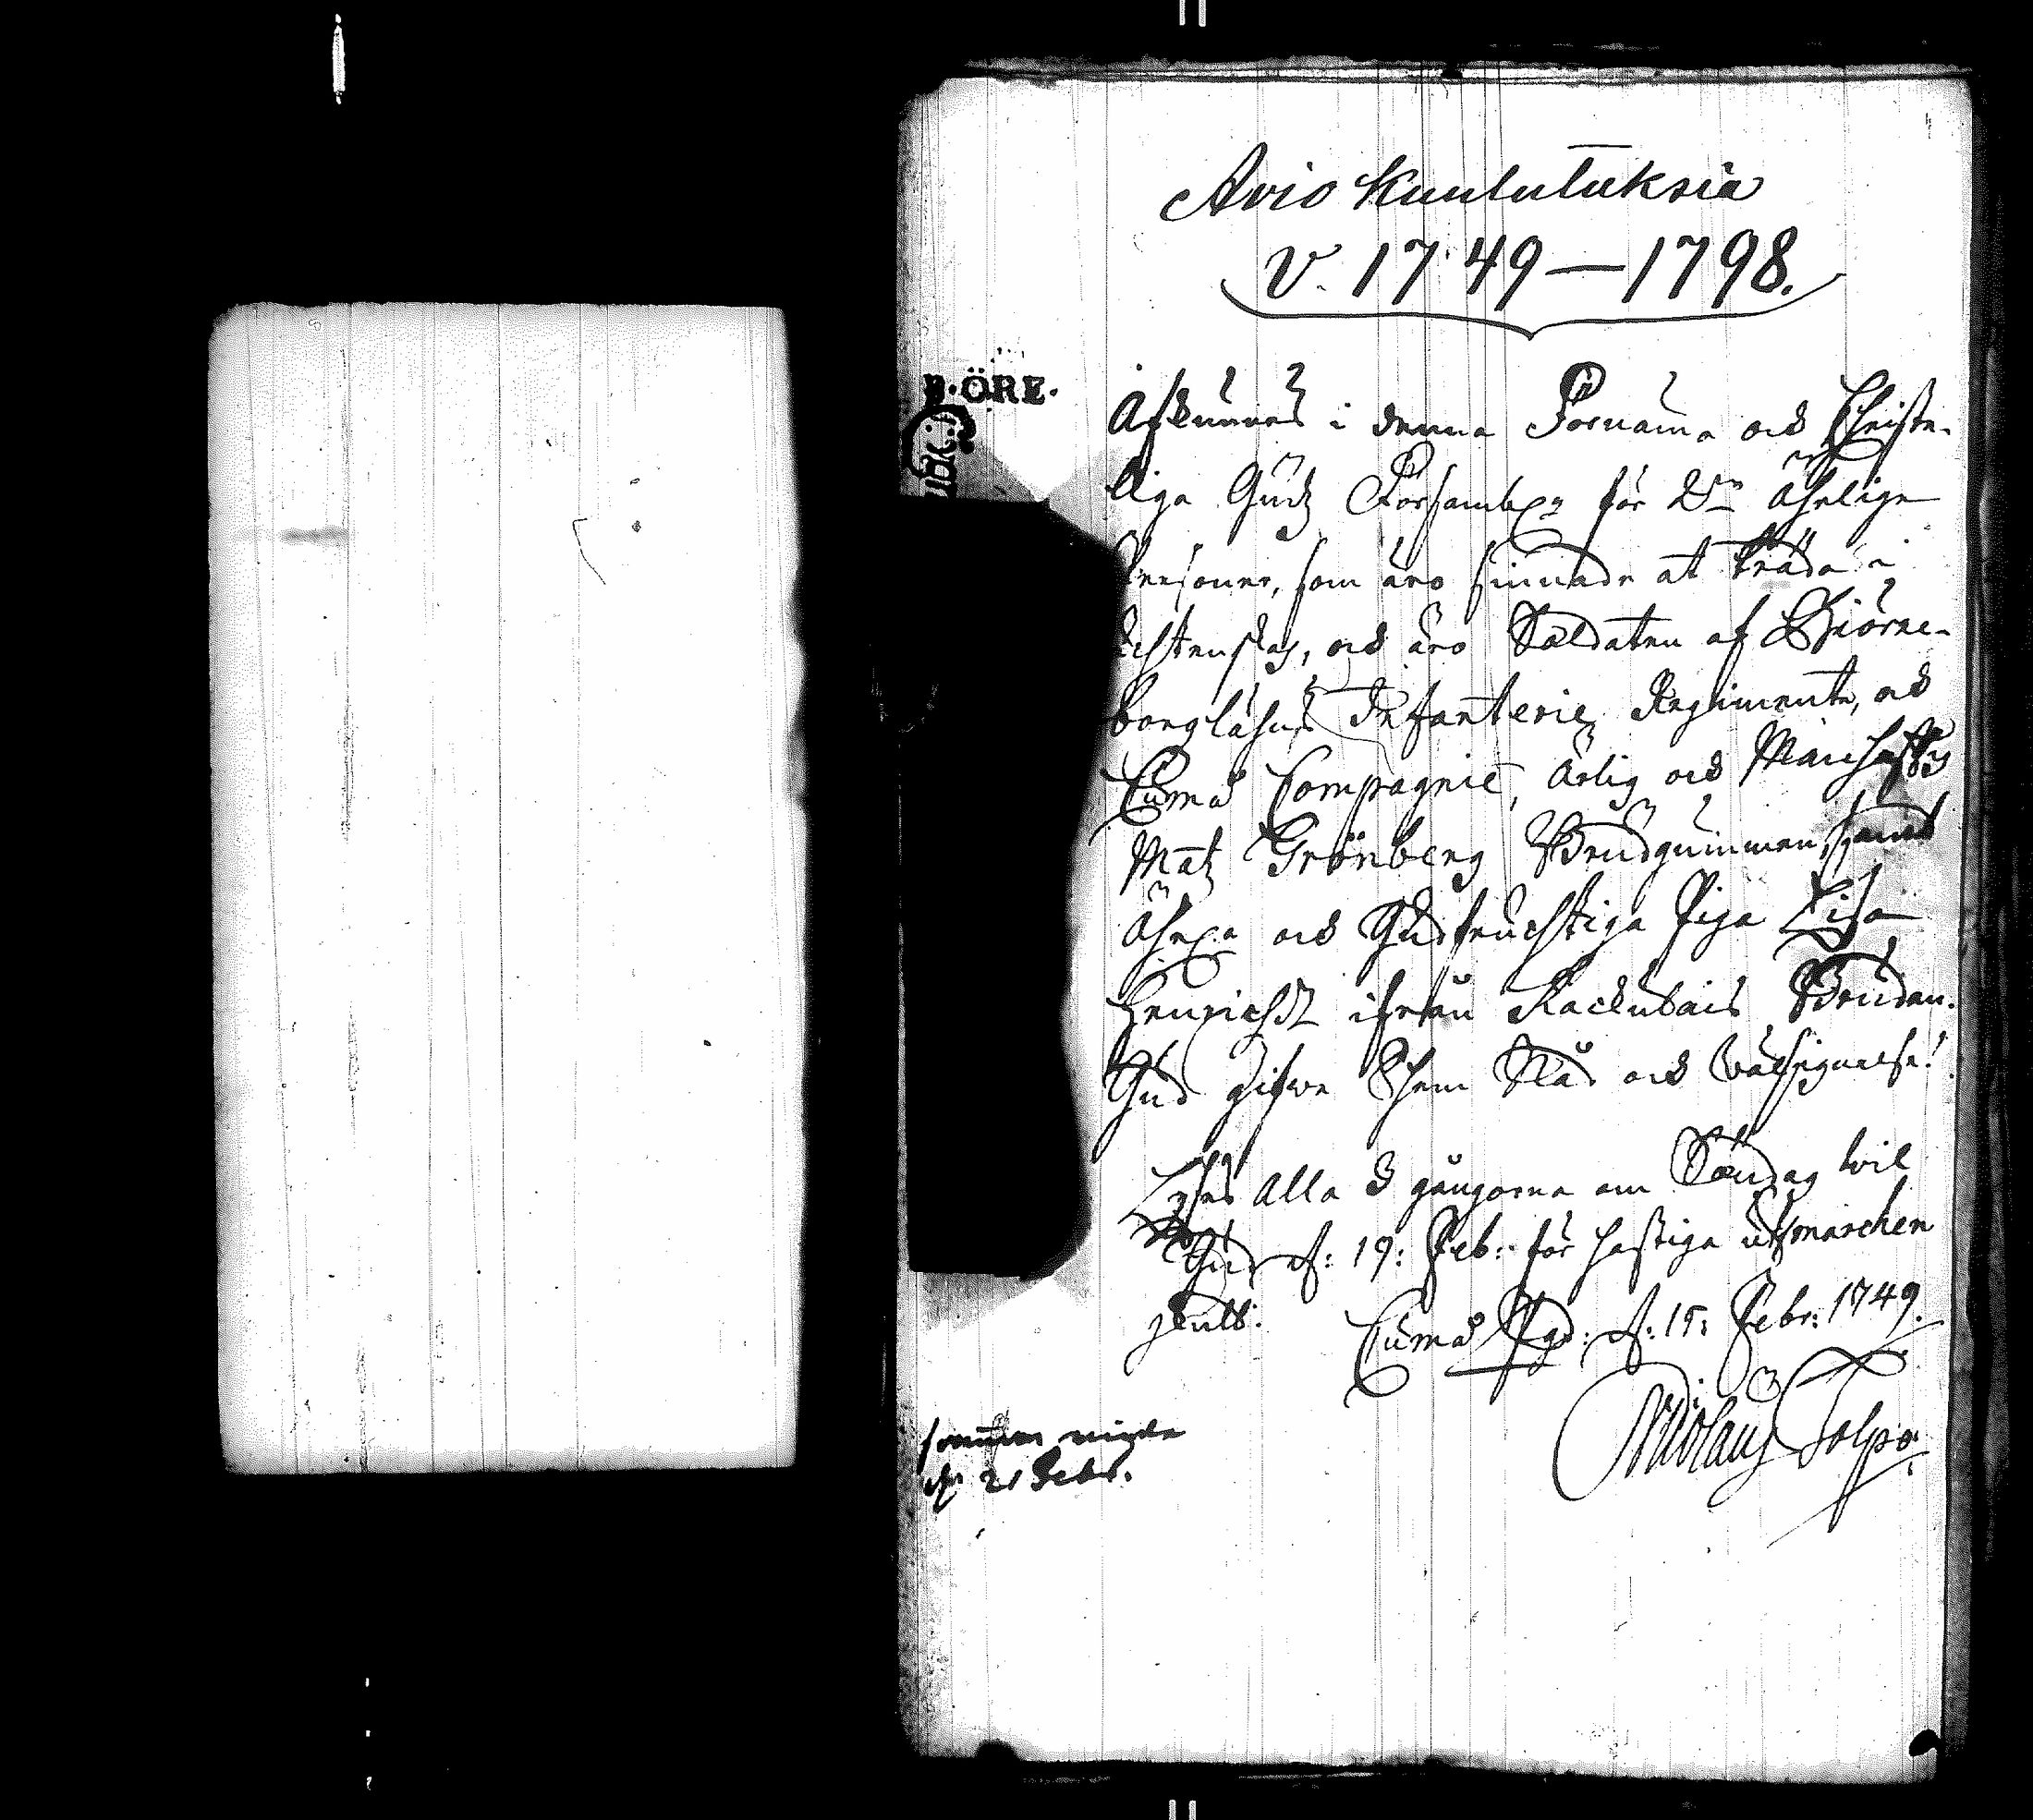 Avio kuulutuksia
v. 1749—1798.
ÖRE.
Afkunnes i denna Förnäma och Christe-
liga Gudz Församl:n för 2:ne Ährlige
Personer, som äro sinnade at träda i
Echtenskap, och äro Soldaten af Biörne-
borgs lähns Infanterie Regimente, och
Cumo Compagnie, Ärlig och Manhafftig
Matz Grönberg Brudgummen, samt
Ährl:a och Gudfruchtiga Piga Lisa
Henrichsd:r ifrån Brudan.
Gud gifwe Them Nåd och wälsignelse!
Lyses Alla 3 gångorna om Söndag wil
Gud d: 19: Feb: för hastiga utmarchen
skull. Cumo Pgd: d: 15: Febr: 1749.
Nicolaus Polpo
d 21 Febr.